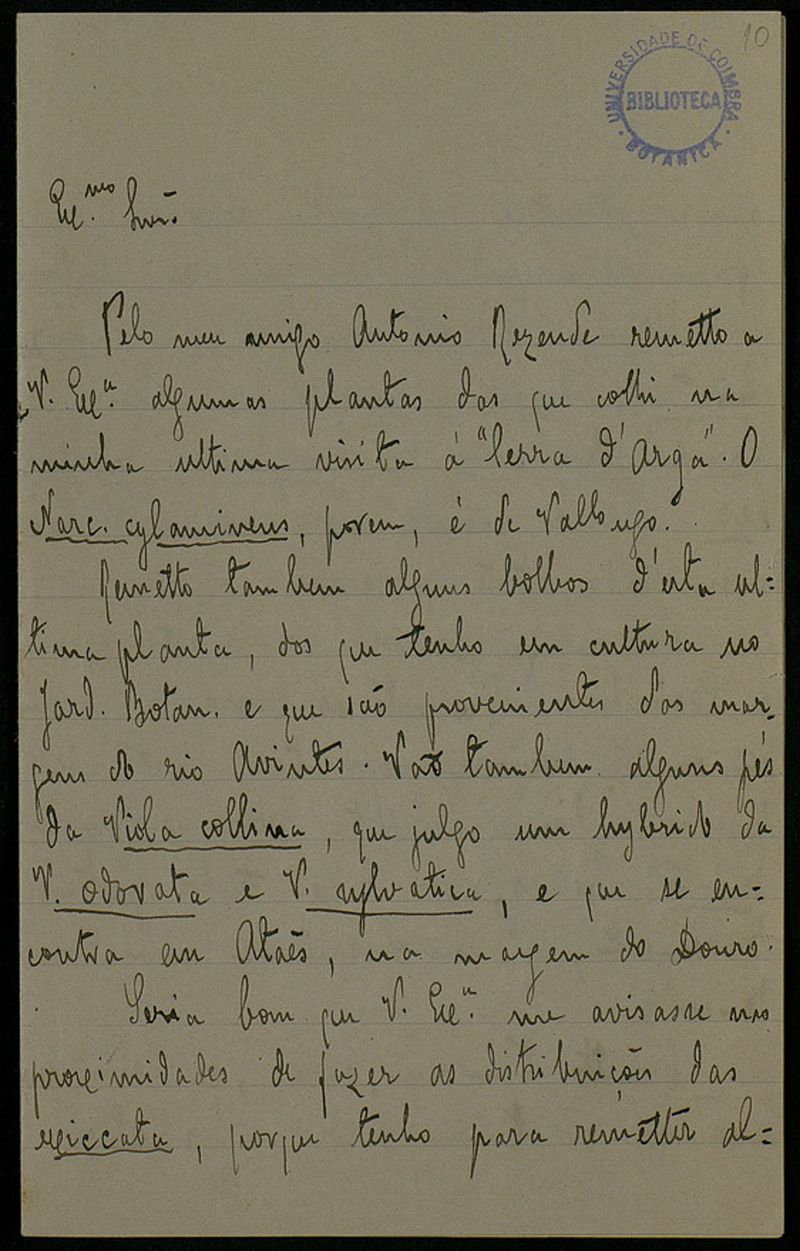 10
UNIVERSIDADE DE COIMBRA
BIBLIOTECA
BOTANICA
Ex.mo Snr.
Pelo meu amigo Antonio Rezende remetto a
V. Ex.a algumas plantas das que colhi na
minha ultima visita á "Serra d'Arga". O
Narc. cylamineus, porem, é de Vallongo.
Remetto tambem alguns bolbos d'esta ul=
tima planta, dos que tenho em cultura no
Jard. Botan. e que são provenientes das mar-
gens do rio Avintes. Vão tambem alguns pés
da Viola collina, que julgo um hybrido da
V. odorata e V. sylvatica, e que se en=
contra em Ataës, na margem do Douro.
Seria bom que V. Ex.a me avisasse nas
proximidades de fazer as distribuições das
exiccata, porque tenho para remetter al=